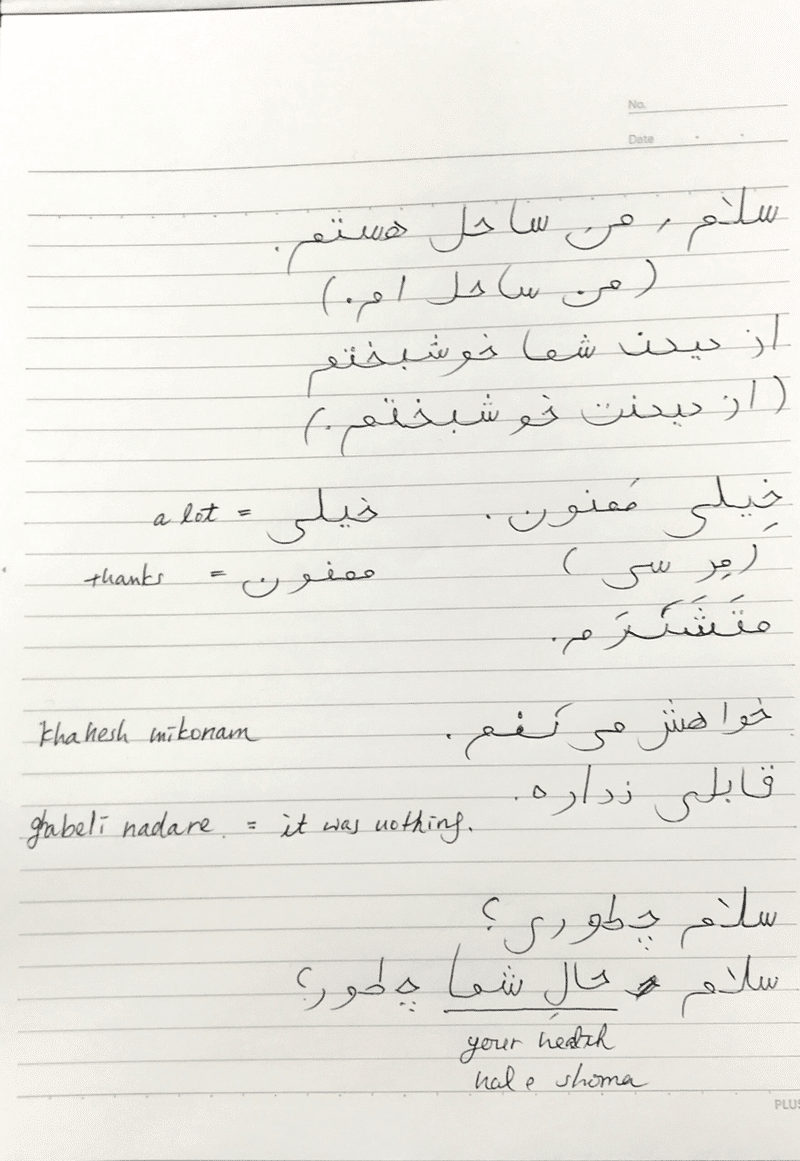 No.
Date
سلام، من ساحل هستم.
(من ساحل ام.)
از دیدن شما خوشبختم
(از دیدنت خوشبختم.)
خِیلی مَمنون. خیلی = a lot
(مِر سی) ممنون = thanks
مَتَشَکَرَ م.
خواهش می کُنم. khahesh mikonam
قابلی نداره.
ghabeli nadare. = it was nothing.
سلام چطوری؟
سلام حالِ شما چطور؟
your health
hal e shoma
PLUS